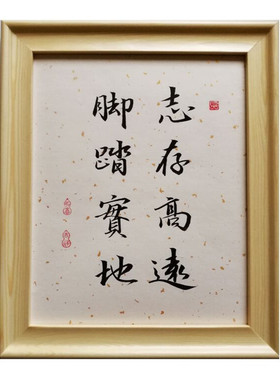 志存高遠
脚踏實地